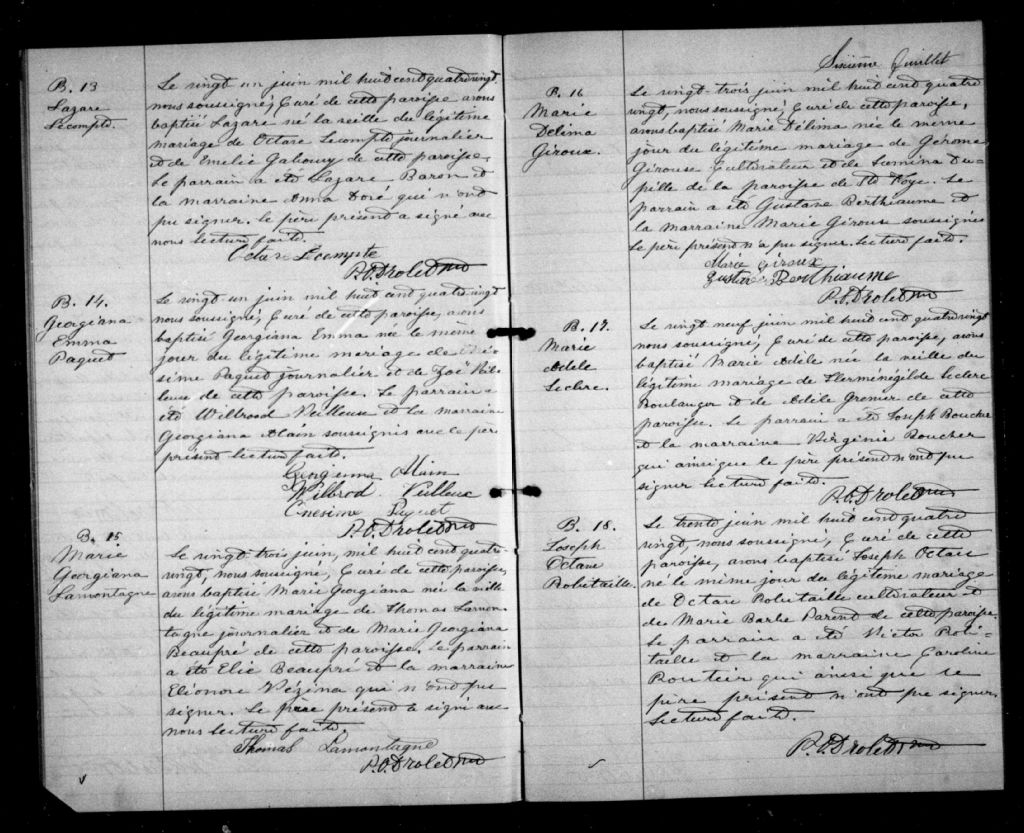 B. 13
Lazare
Lecompte.
Le vingt un juin mil huit cent quatre vingt
nous soussigné, Curé de cette paroisse avons
baptisé Lazare né la veille du légitime
mariage de Octave Lecompte journalier
et de Emelie de cette paroisse.
Le parrain a été Lazare Baron et
la marraine Anna Doré qui n'ont
pu signer. le père présent a signé avec
nous lecture faite.
Octave Lecompte
P.O. Drolet Ptre
B. 14.
Georgiana
Emma
Paquet
Le vingt un juin mil huit cent quatre vingt
nous soussigné, Curé de cette paroisse, avons
baptisé Georgiana Emma née le même
jour du légitime mariage de Oné-
sime Paquet journalier et de Zoë Veil-
leux de cette paroisse. Le parrain a
été Wilbrod Veilleux et la marraine
Georgiana Alain soussignés avec le père
présent lecture faite.
Georgianna Alain
Wilbrod Veilleux
Onesime Paquet
P.O. Drolet Ptre
B. 15
Marie
Georgiana
Lamontagne
Le vingt-trois juin, mil huit cent quatre
vingt, nous soussigné, Curé de cette paroisse,
avons baptisé Marie Georgiana née la veille
du légitime mariage de Thomas Lamon-
tagne journalier et de Marie Georgiana
Beaupré de cette paroisse. Le parrain
a été Elie Beaupré et la marraine
Eléonore Vézina qui n'ont pu
signer. Le père présent a signé avec
nous lecture faite.
Thomas Lamontagne
P.O. Drolet Ptre
Sixième Juillet
B. 16
Marie
Delima
Giroux.
Le vingt-trois juin mil huit cent quatre
vingt, nous soussigné, Curé de cette paroisse,
avons baptisé Marie Délima née le même
jour du légitime mariage de Gérome
Girouse Cultivateur et de Lumina Du-
pille de la paroisse de Ste Foye. Le
parrain a été Gustave Berthiaume et
la marraine Marie Girouse soussignés
Le père présent n'a pu signer. Lecture faite.
Marie Giroux
Gustave Berthiaume
P.O. Drolet Ptre
B. 17.
Marie
Adèle
Leclerc.
Le vingt neuf juin mil huit cent quatre vingt
nous soussigné, Curé de cette paroisse, avons
baptisé Marie Adèle née la veille du
légitime mariage de Herménégilde Leclerc
Boulanger et de Adèle Grenier de cette
paroisse. Le parrain a été Joseph Boucher
et la marraine Virginie Boucher
qui ainsi que le père présent n'ont pu
signer lecture faite.
P.O. Drolet Ptre
B. 18.
Joseph
Octave
Robitaille.
Le trente juin mil huit cent quatre
vingt, nous soussigné, Curé de cette
paroisse, avons baptisé Joseph Octave
né le même jour du légitime mariage
de Octave Robitaille cultivateur et
de Marie Barbe Parent de cette paroisse.
Le parrain a été Victor Robi-
taille et la marraine Caroline
Routier qui ainsi que le
père présent n'ont pu signer.
Lecture faite.
P.O. Drolet Ptre